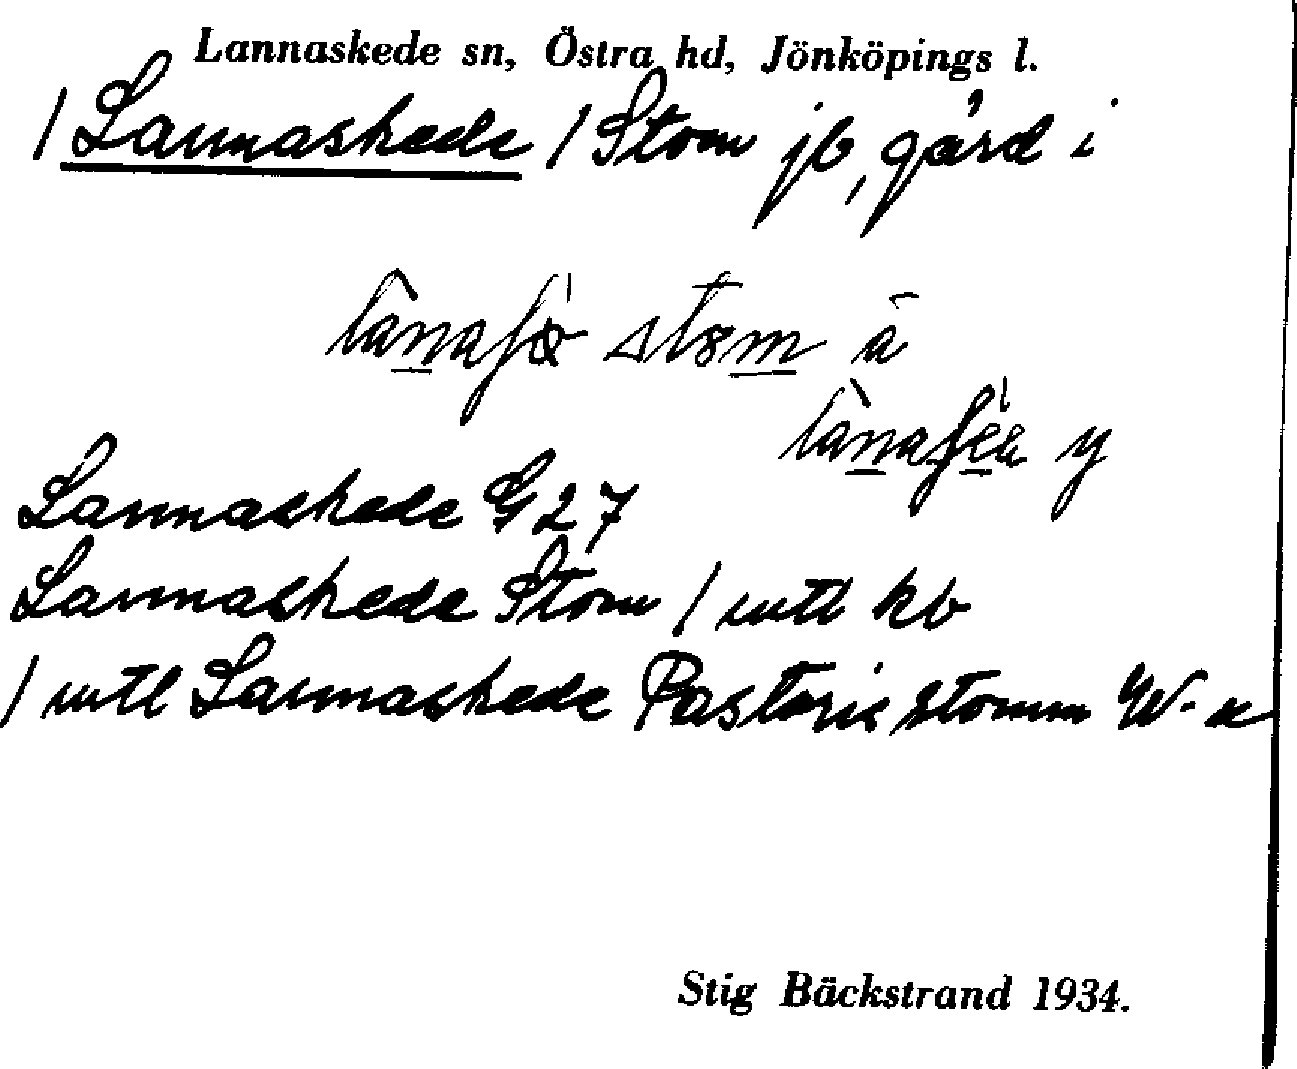 Lannaskede sn, Östra hd, Jönköpings l.
/ Lannaskede / Stom jb, gård i
stom ä
y
Lannaskede G 27
Lannaskede Stom / mtl kb
/ mtl Lannaskede Pastoris stomm W-a
Stig Bäckstrand 1934.